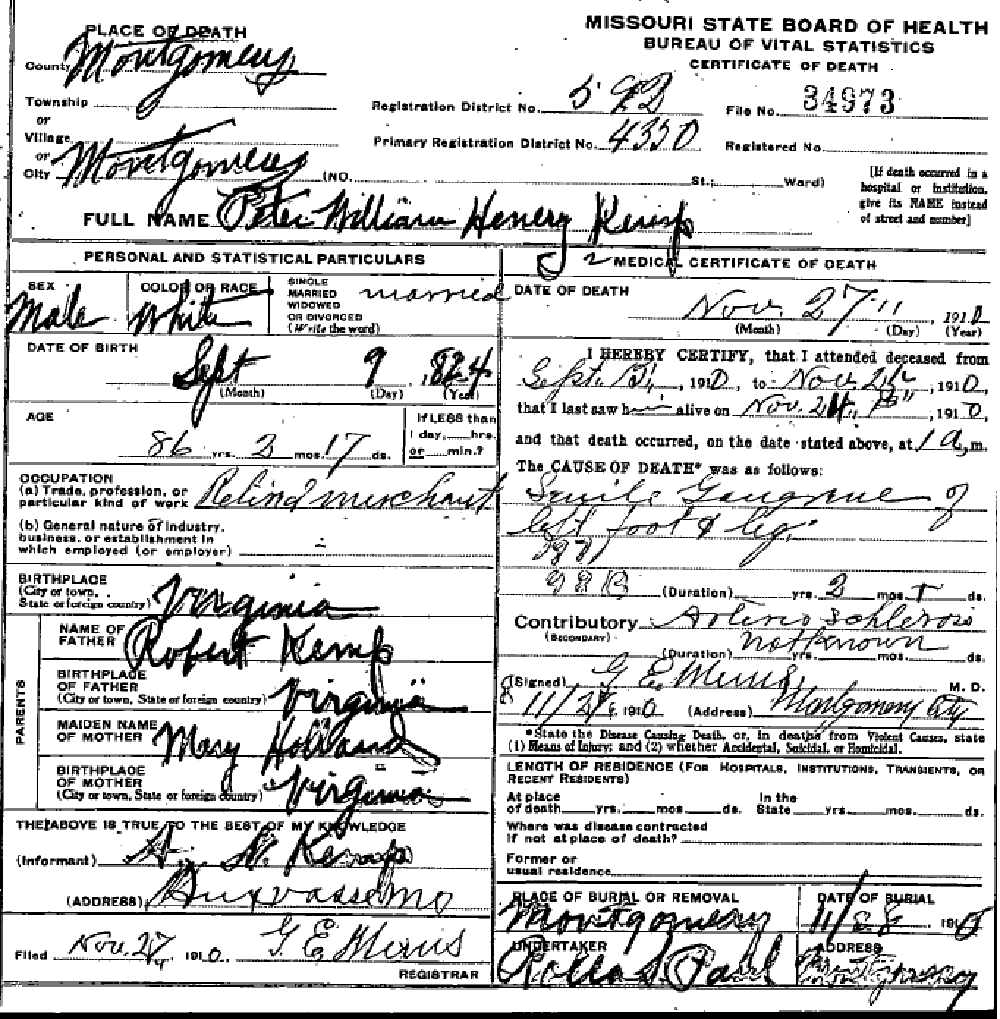 MISSOURI STATE BOARD OF HEALTH
BUREAU OF VITAL STATISTICS
CERTIFICATE OF DEATH
PLACE OF DEATH
County Montgomery
Township
or
Village
or
City Montgomery (NO. St.; Ward)
Registration District No. 592 File No. 34973
Primary Registration District No. 4350 Registered No.
[If death occurred in a
hospital or institution,
give its NAME instead
of street and number]
FULL NAME Peter William Henery Kemp
PERSONAL AND STATISTICAL PARTICULARS
SEX
Male
COLOR OR RACE
White
SINGLE
MARRIED
WIDOWED
OR DIVORCED
(Write the word)
married
DATE OF BIRTH
Sept 9, 1824
(Month) (Day) (Year)
AGE
86 yrs. 2 mos. 17 ds.
If LESS than
1 day, hrs.
or min.?
OCCUPATION
(a) Trade, profession, or
particular kind of work Retired merchant
(b) General nature of industry,
business, or establishment in
which employed (or employer) -
BIRTHPLACE
(City or town,
State or foreign country) Virginia
PARENTS
NAME OF
FATHER Robert Kemp
BIRTHPLACE
OF FATHER
(City or town, State or foreign country) Virginia
MAIDEN NAME
OF MOTHER Mary Holland
BIRTHPLACE
OF MOTHER
(City or town, State or foreign country) Virginia
THE ABOVE IS TRUE TO THE BEST OF MY KNOWLEDGE
(Informant) Kemp
(ADDRESS) Auxvasse Mo
Filed Nov. 27, 1910 G E Muns
REGISTRAR
2 MEDICAL CERTIFICATE OF DEATH
DATE OF DEATH
Nov. 27", 1910
(Month) (Day) (Year)
I HEREBY CERTIFY, that I attended deceased from
Sept. , 1910, to Nov. , 1910,
that I last saw him alive on Nov. , 1910,
and that death occurred, on the date stated above, at 1 a.m.
The CAUSE OF DEATH* was as follows:
Senile Gangrene of
left foot & leg.
(Duration) yrs. 2 mos. ds.
Contributory Arterio Schlerosis
(SECONDARY) not known
(Duration) yrs. mos. ds.
(Signed) G E Muns, M. D.
11/ 1910 (Address) Montgomery City
*State the Disease Causing Death, or, in deaths from Violent Causes, state
(1) Means of Injury; and (2) whether Accidental, Suicidal, or Homicidal.
LENGTH OF RESIDENCE (FOR HOSPITALS, INSTITUTIONS, TRANSIENTS, OR
RECENT RESIDENTS)
At place
of death yrs. mos. ds.
In the
State yrs. mos. ds.
Where was disease contracted
if not at place of death?
Former or
usual residence
PLACE OF BURIAL OR REMOVAL
Montgomery
DATE OF BURIAL
11/28 1910
UNDERTAKER
ADDRESS
Montgomery